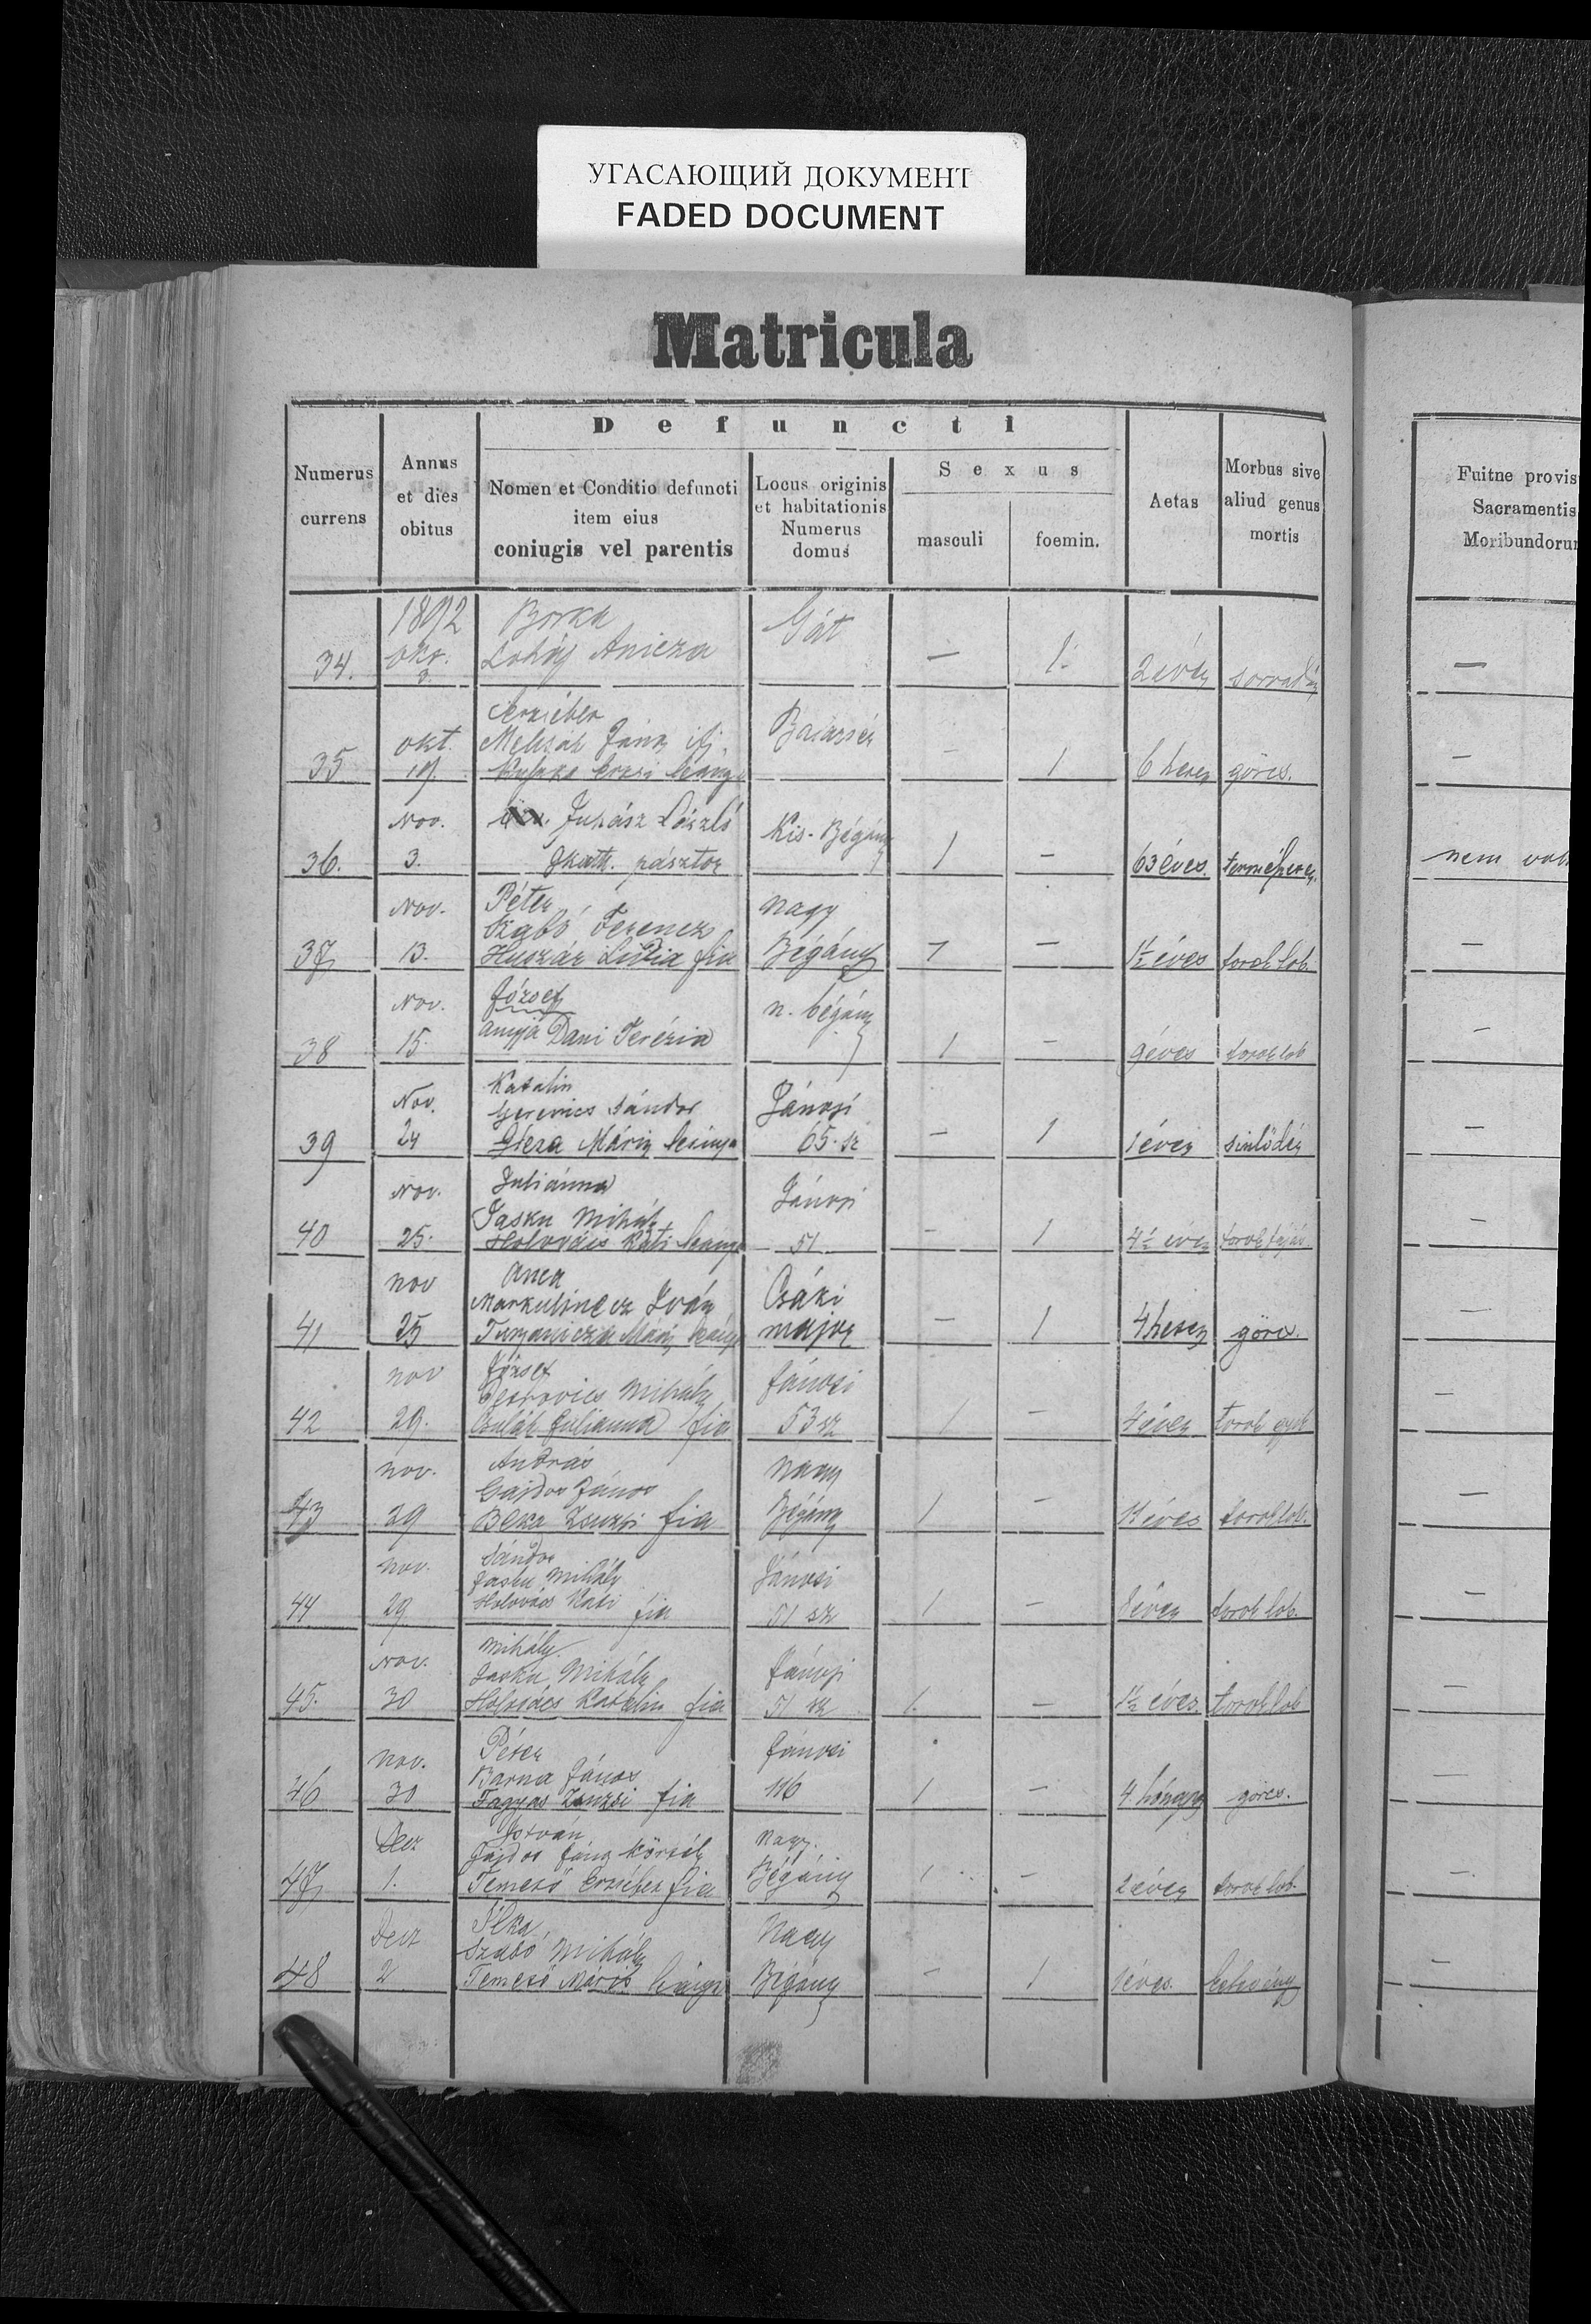 УГАСАЮЩИЙ ДОКУМЕНТ
FADED DOCUMENT
Matricula
Defuncti
Numerus currens
Annus et dies obitus
Nomen et Conditio defuncti item eius coniugis vel parentis
Locus originis et habitationis Numerus domus
Sexus
masculi
foemin.
Aetas
Morbus sive aliud genus mortis
Fuitne provis
Sacramentis
Moribundorum
1892 Borka Gát
34. okt. 3. Anicza — 1. 2 éves
Erzsébet
okt. János ifj.
35 19. Erzsi leánya — 1 6 hetes görcs. —
Nov. Juhász László Kis-Bégány
36. 3. gkath. pásztor 1 — 63 éves. természetes. nem volt
Nov. Péter Nagy
Szabó Ferencz
37 13. Huszár Lidia fia Bégány 1 — 1½ éves torok lob. —
Nov. József n. bégány
38 15. anyja Dani Terézia 1 — 9 éves torok lob —
Katalin
Nov. Gerevics Sándor Jánosi
39 24 Géza Mária leánya 65. sz — 1 1 éves sinlődés —
Nov. Juliánna Jánosi
Jasku Mihály
40 25. Holovács Kati leánya 51 — 1 4½ éves torok fájás —
nov Anca Csáki
Markulinecz Iván
41 25 Turjanicza Mária leánya major — 1 4 hetes görcs. —
nov József Jánosi
Petrovics Mihály
42 29. Csulák Julianna fia 53 sz 1 — 4 éves torok gyík —
nov. András Nagy
Gajdos János
43 29 Beka Zsuzsi fia Bégány 1 — éves torok lob. —
nov. Sándor Jánosi
Jasku Mihály
44. 29 Holovács Kati fia 51 sz 1 — éves torok lob. —
Nov. Mihály Jánosi
Jasku Mihály
45. 30 Holovács Katalin fia 51 sz 1. — 1½ éves. torok lob —
nov. Péter Jánosi
Barna János
46 30 Fagyas Zsuzsi fia 116 1 — 4 hónapos görcs. —
Decz István Nagy.
Gajdos János
47 1. Temető Erzsébet fia Bégány 1 — 2 éves torok lob. —
Decz Ilka Nagy
Szabó Mihály
48 2 Temető Mária leánya Bégány — 1 1 éves. kelevény —